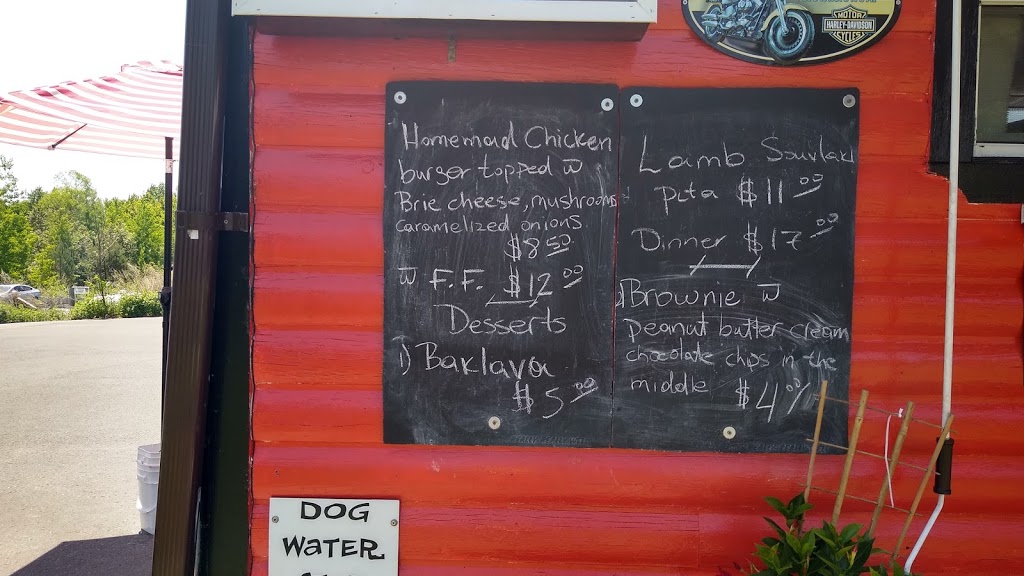 MOTOR
HARLEY-DAVIDSON
CYCLES
Homemaid Chicken
burger topped w̅
Brie cheese, mushrooms
caramelized onions.
$8.50
w̅ F.F. $12.00
Desserts
1) Baklava
$5.00
Lamb Souvlaki
Pita $11.00
Dinner $17.00
1) Brownie w̅
peanut butter cream
chocolate chips in the
middle $4.00
DOG
WATER